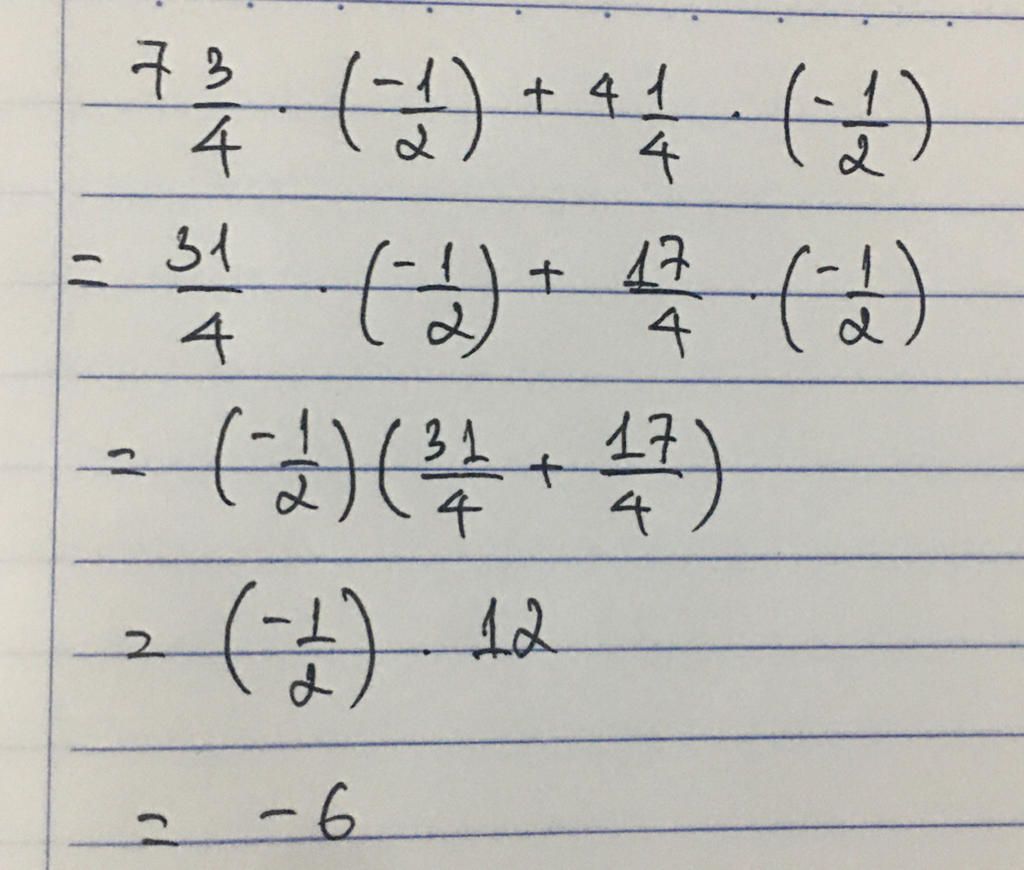 7 3/4 . (-1/2) + 4 1/4 . (-1/2)
= 31/4 . (-1/2) + 17/4 . (-1/2)
= (-1/2) (31/4 + 17/4)
= (-1/2) . 12
= -6